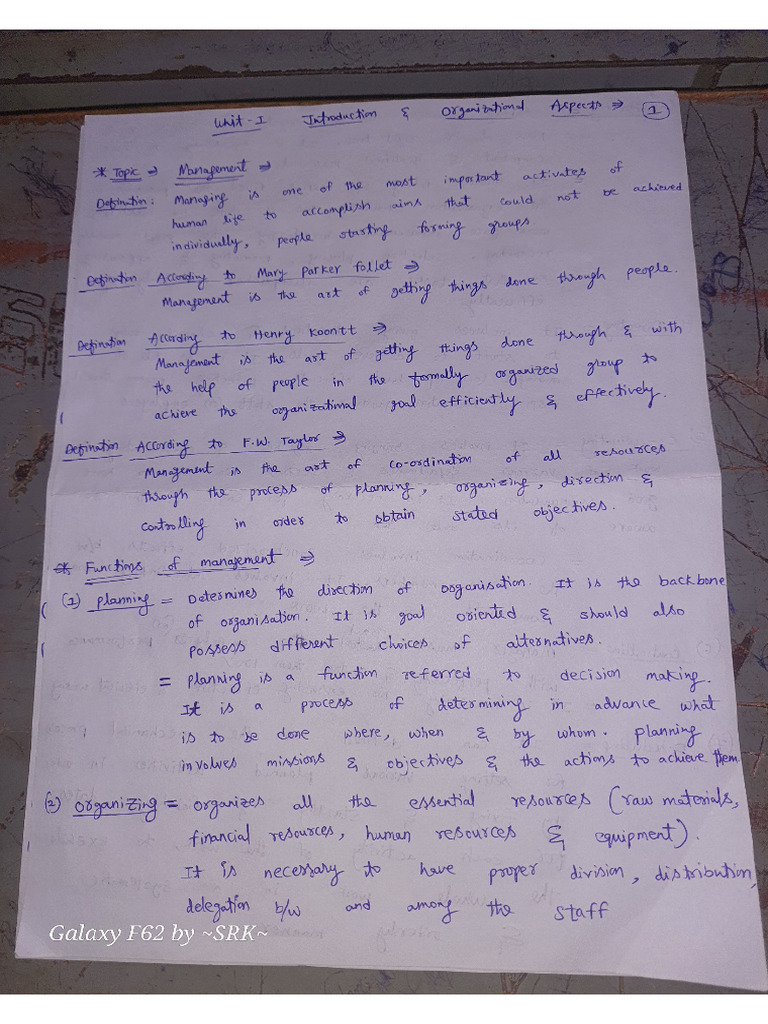 Unit-I Introduction & Organizational Aspects ⇒ 1
* Topic ⇒ Management ⇒
Defination: Managing is one of the most important activates of
human life to accomplish aims that could not be achieved
individually, people starting forming groups
Defination According to Mary Parker Follet ⇒
Management is the art of getting things done through people.
Defination According to Henry Koontt ⇒
Management is the art of getting things done through & with
the help of people in the formally organized group to
achieve the organizational goal efficiently & effectively.
Defination According to F.W. Taylor ⇒
Management is the art of co-ordination of all resources
through the process of planning, organizing, direction &
controlling in order to obtain stated objectives.
* Functions of management ⇒
(1) planning = Determines the direction of organisation. It is the backbone
of organisation. It is goal oriented & should also
possess different choices of alternatives.
= planning is a function referred to decision making.
It is a process of determining in advance what
is to be done where, when & by whom. planning
involves missions & objectives & the actions to achieve them.
(2) organizing = organizes all the essential resources (raw materials,
financial resources, human resources & equipment).
It is necessary to have proper division, distribution,
delegation b/w and among the staff
Galaxy F62 by ~SRK~